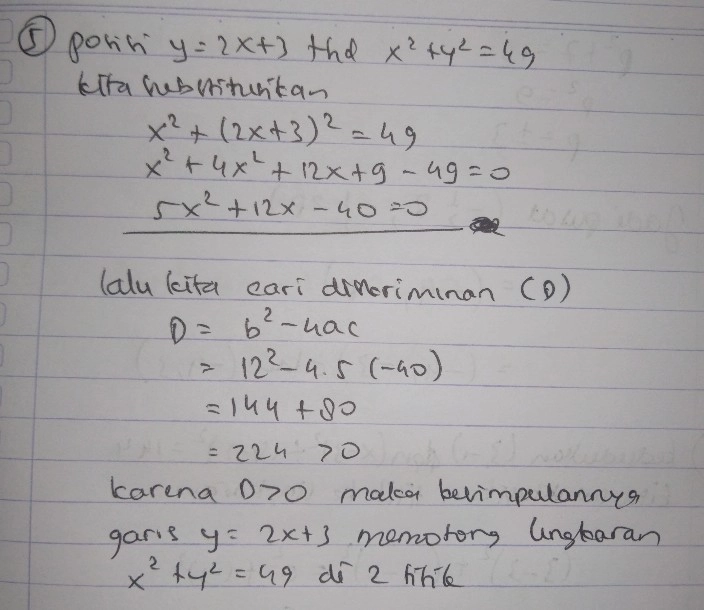 ⑤ posisi y = 2x+3 thd x² + y² = 49
kita substitusikan
x² + (2x+3)² = 49
x² + 4x² + 12x + 9 - 49 = 0
5x² + 12x - 40 = 0
lalu kita cari diskriminan (D)
D = b² - 4ac
= 12² - 4.5 (-40)
= 144 + 80
= 224 > 0
karena D>0 maka kesimpulannya
garis y = 2x+3 memotong lingkaran
x² + y² = 49 di 2 titik